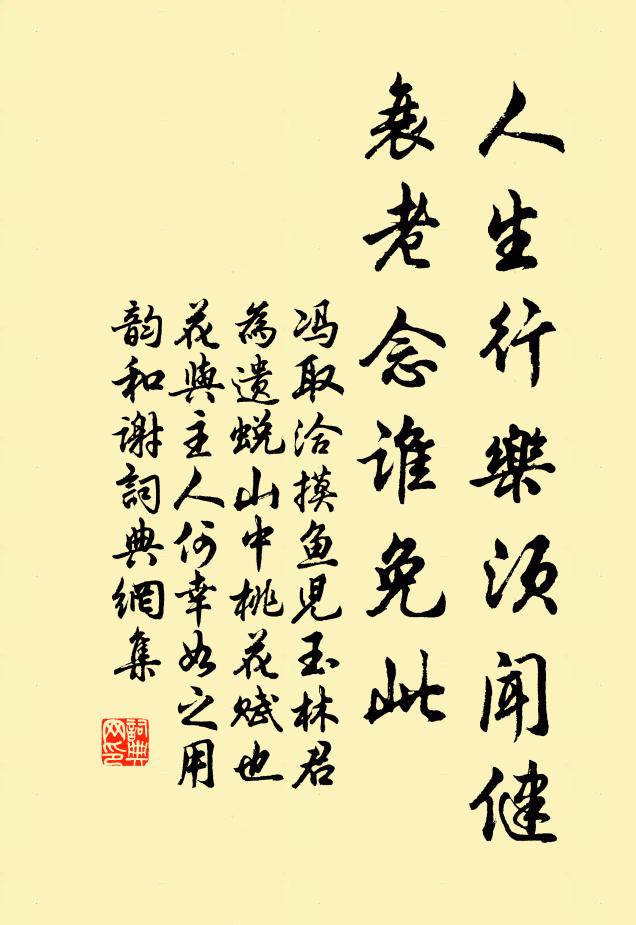 人生行樂须聞健
衰老念谁免此
冯取洽摸鱼児玉林君
為遺蜕山中桃花赋也
花與主人何幸如之用
韵和谢詞典網集
詞典网印